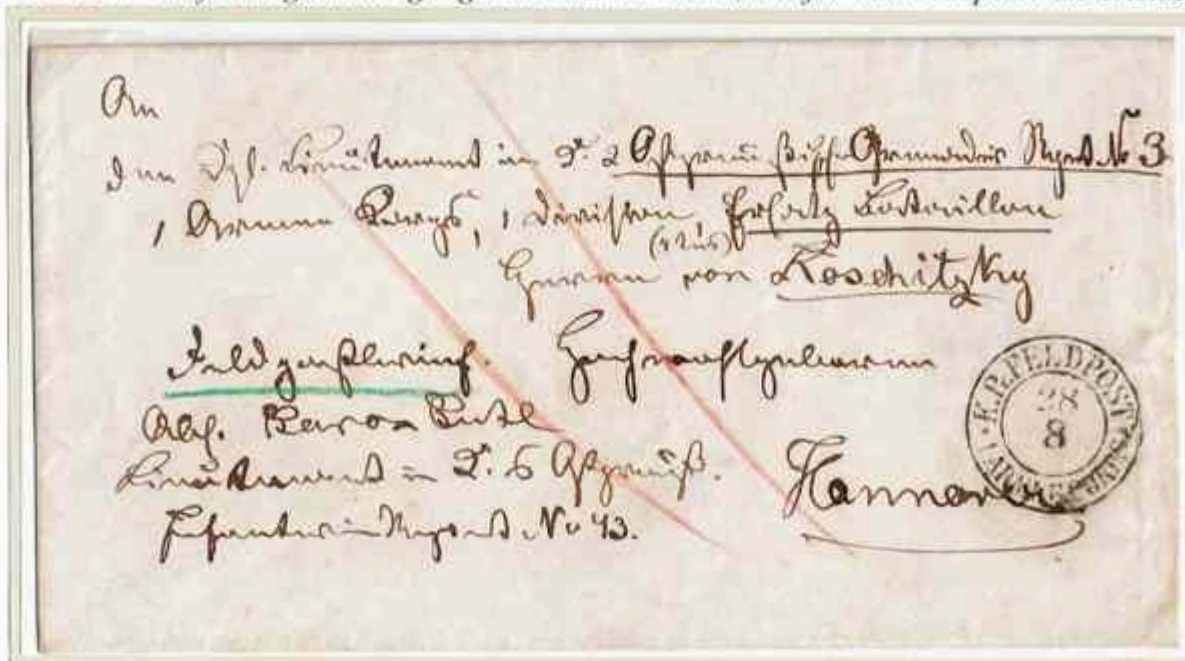 An
den Kgl. Lieutenant im 2. Ostpreußische Grenadier Rgmt. No 3
1 Armee Corps, 1 Division, Ersatz Bataillon
Herrn von Koschitzky
Feldpostbrief. Hochwohlgeboren
Abs. Baron
Lieutenant im 6 Ostpreuß.
Infanterie Regmt No 43.
Hannover
K.PR.FELDPOST
28
8